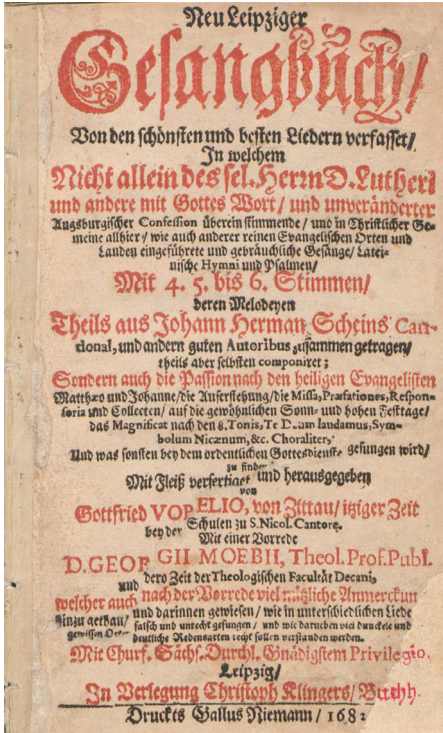 Neu Leipziger
Gesangbuch/
Von den schönsten und besten Liedern verfasset/
In welchem
Nicht allein des sel. Herrn D. Lutheri
und andere mit Gottes Wort/ und unveränderter
Augsburgischer Confession überein stimmende/ und in Christlicher Ge-
meine allhier/ wie auch anderer reinen Evangelischen Orten und
Landen eingeführete und gebräuchliche Gesänge/ Latei-
nische Hymni und Psalmen/
Mit 4. 5. bis 6. Stimmen/
deren Melodeyen
Theils aus Johann Herman Scheins Can-
tional, und andern guten Autoribus zusammen getragen/
theils aber selbsten componiret;
Sondern auch die Passion nach den heiligen Evangelisten
Matthæo und Johanne/ die Auferstehung/ die Missa, Præfationes, Respon-
soria und Collecten/ auf die gewöhnlichen Sonn- und hohen Festtage/
das Magnificat nach den 8. Tonis, Te Deum laudamus, Sym-
bolum Nicænum, &c. Choraliter,
Und was sonsten bey dem ordentlichen Gottesdienst gesungen wird/
zu finden
Mit Fleiß verfertiget und herausgegeben
von
Gottfried VOPELIO, von Zittau/ itziger Zeit
bey der Schulen zu S. Nicol. Cantore.
Mit einer Vorrede
D. GEORGII MOEBII, Theol. Prof. Publ.
dero Zeit der Theologischen Facultät Decani,
und
welcher auch nach der Vorrede viel nützliche Anmerckun
hinzu gethan/ und darinnen gewiesen/ wie in unterschiedlichen Liede
gewissen Orten falsch und unrecht gesungen/ und wie darneben viel dunckele und
deutliche Redensarten recht sollen verstanden werden.
Mit Churf. Sächs. Durchl. Gnädigstem Privilegio.
Leipzig/
In Verlegung Christoph Klingers/ Buchh.
Druckts Gallus Niemann/ 1682